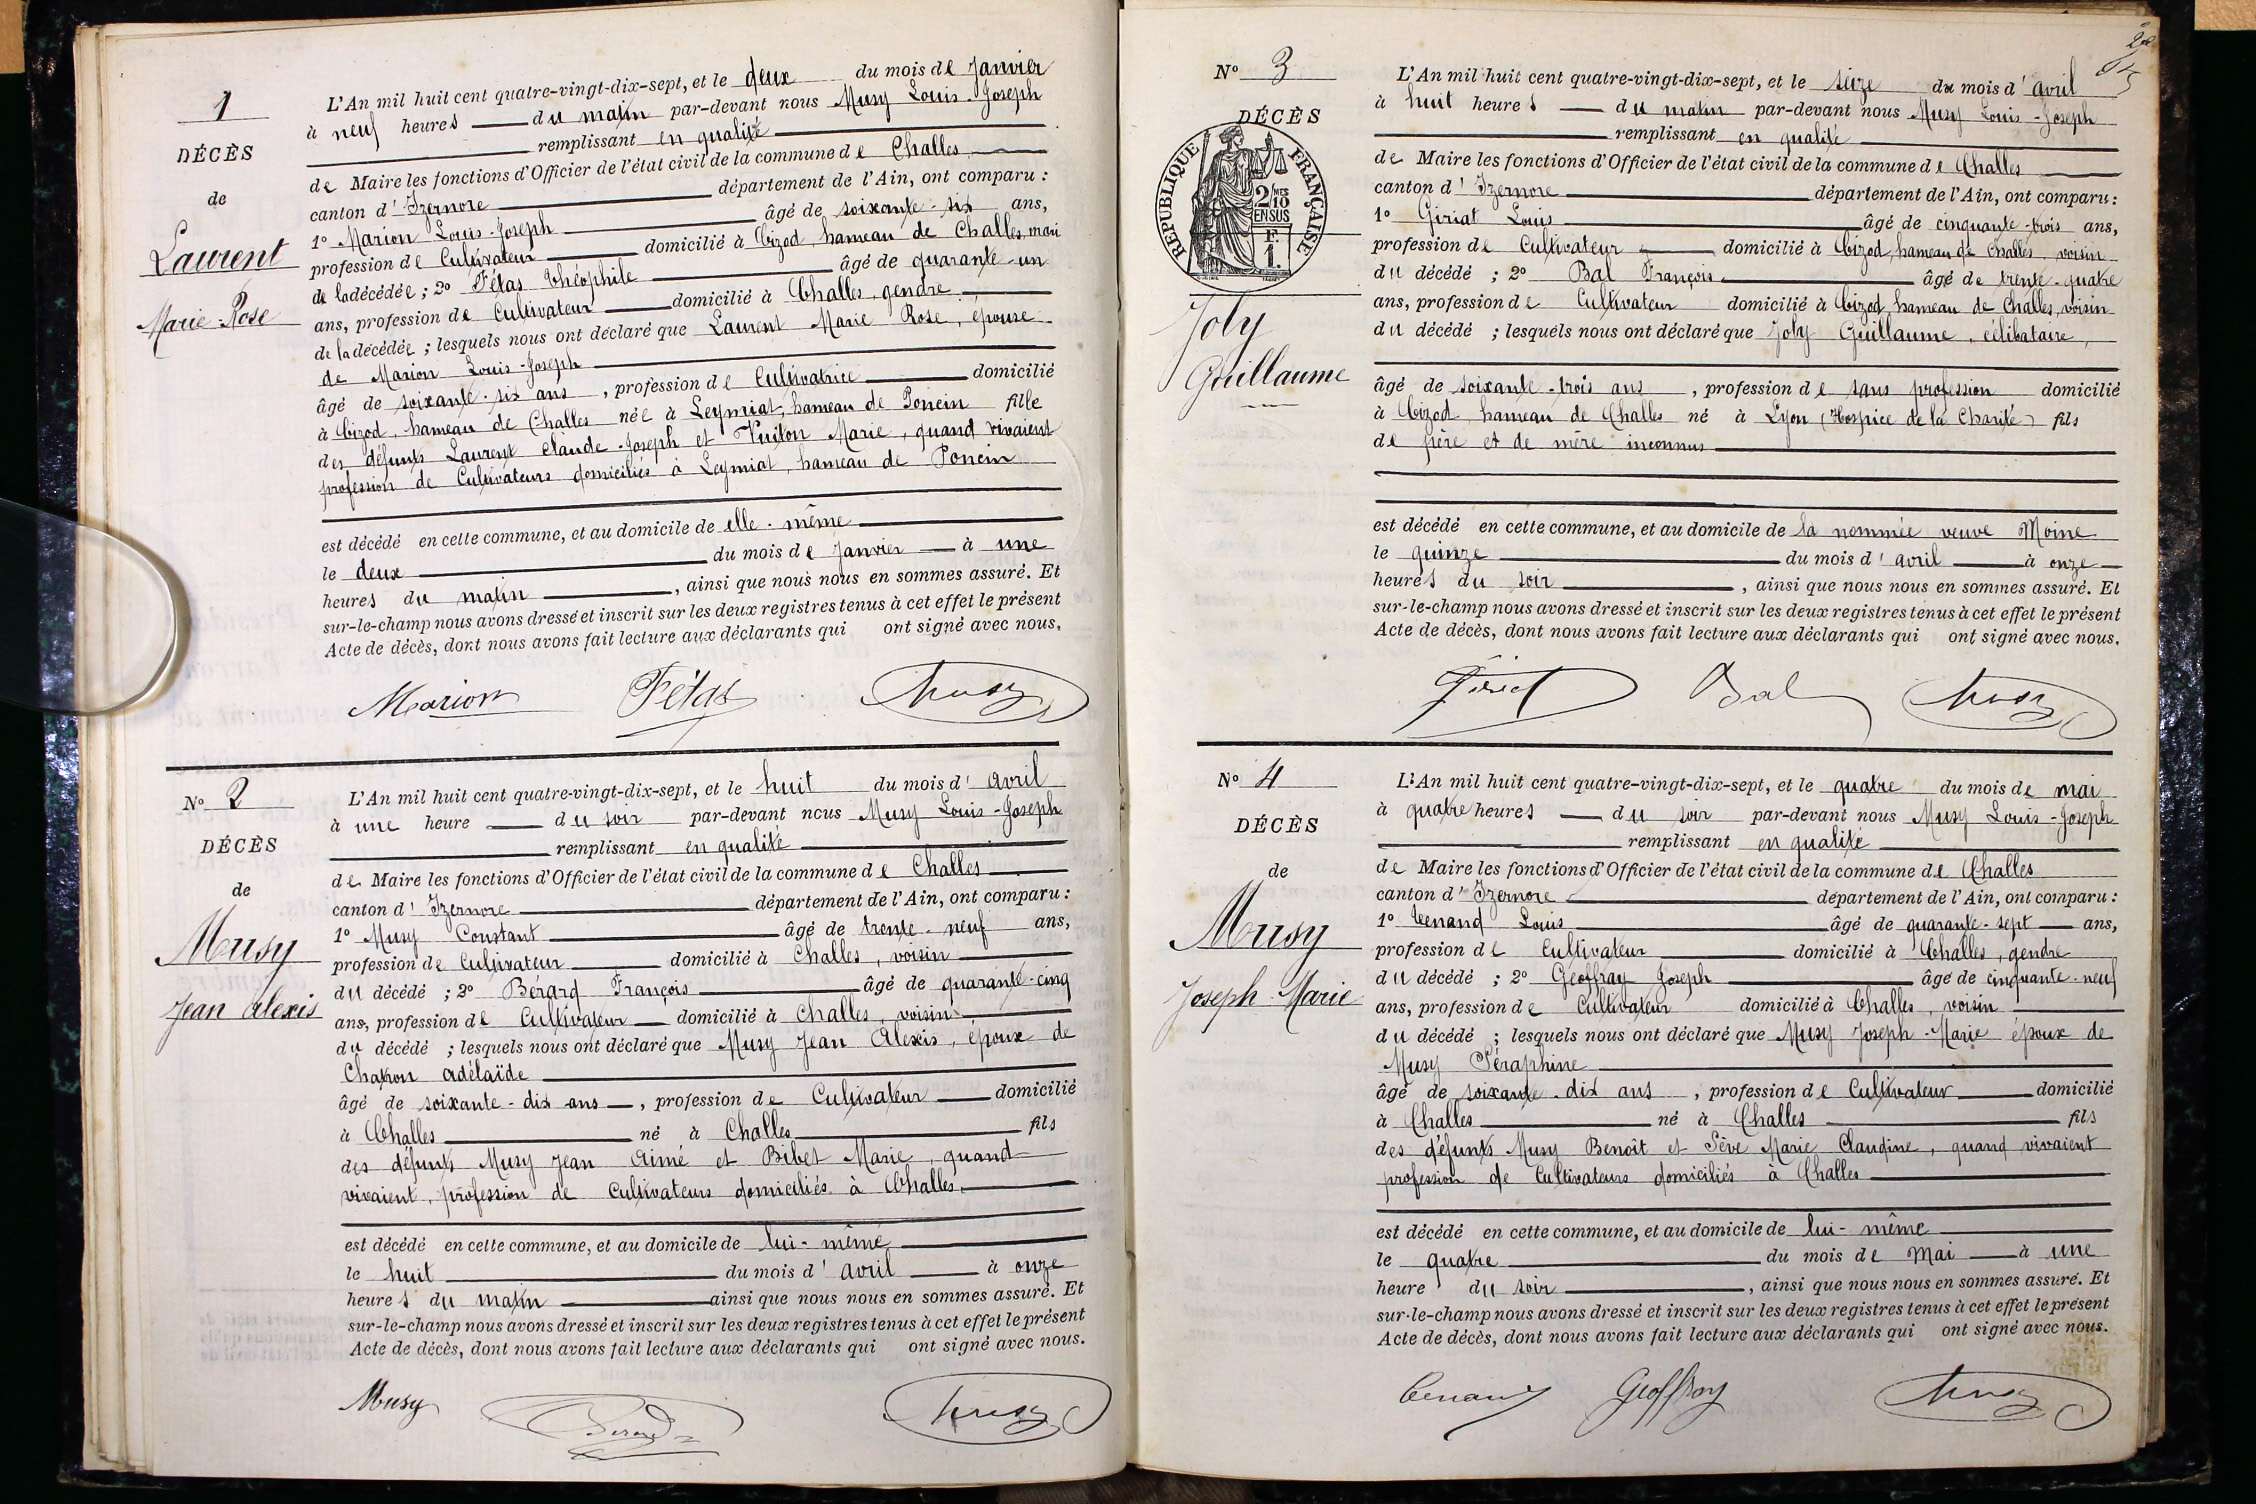 1
DÉCÈS
de
Laurent
Marie-Rose
L'An mil huit cent quatre-vingt-dix-sept, et le deux du mois de Janvier
à neuf heures du matin par-devant nous Musy Louis-Joseph
remplissant en qualité
de Maire les fonctions d'Officier de l'état civil de la commune de Challes
canton d'Izernore département de l'Ain, ont comparu :
1º Marion Louis-Joseph âgé de soixante-six ans,
profession de Cultivateur domicilié à Cizod hameau de Challes, mari
de la décédée ; 2º Fétas Théophile âgé de quarante-un
ans, profession de Cultivateur domicilié à Challes, gendre
de la décédée ; lesquels nous ont déclaré que Laurent Marie Rose, épouse
de Marion Louis-Joseph
âgé de soixante-six ans, profession de Cultivatrice domicilié
à Cizod, hameau de Challes née à Leymiat, hameau de Poncin fille
des défunts Laurent Claude-Joseph et Vuiton Marie, quand vivaient
profession de Cultivateurs domiciliés à Leymiat, hameau de Poncin
est décédé en cette commune, et au domicile de elle-même
le deux du mois de Janvier à une
heures du matin, ainsi que nous nous en sommes assuré. Et
sur-le-champ nous avons dressé et inscrit sur les deux registres tenus à cet effet le présent
Acte de décès, dont nous avons fait lecture aux déclarants qui ont signé avec nous.
Marion Fétas Musy
Nº 2
DÉCÈS
de
Musy
Jean Alexis
L'An mil huit cent quatre-vingt-dix-sept, et le huit du mois d'avril
à une heure du soir par-devant nous Musy Louis-Joseph
remplissant en qualité
de Maire les fonctions d'Officier de l'état civil de la commune de Challes
canton d'Izernore département de l'Ain, ont comparu :
1º Musy Constant âgé de trente-neuf ans,
profession de Cultivateur domicilié à Challes, voisin
du décédé ; 2º Bérard François âgé de quarante-cinq
ans, profession de Cultivateur domicilié à Challes, voisin
du décédé ; lesquels nous ont déclaré que Musy Jean Alexis, époux de
Chatron Adélaïde
âgé de soixante-dix ans, profession de Cultivateur domicilié
à Challes né à Challes fils
des défunts Musy Jean Aimé et Bibet Marie, quand
vivaient, profession de Cultivateurs domiciliés à Challes
est décédé en cette commune, et au domicile de lui-même
le huit du mois d'avril à onze
heures du matin ainsi que nous nous en sommes assuré. Et
sur-le-champ nous avons dressé et inscrit sur les deux registres tenus à cet effet le présent
Acte de décès, dont nous avons fait lecture aux déclarants qui ont signé avec nous.
Musy Berard Musy
Nº 3
DÉCÈS
RÉPUBLIQUE FRANÇAISE
2/10 MES
EN SUS
F.
1.
Joly
Guillaume
L'An mil huit cent quatre-vingt-dix-sept, et le seize du mois d'avril
à huit heures du matin par-devant nous Musy Louis-Joseph
remplissant en qualité
de Maire les fonctions d'Officier de l'état civil de la commune de Challes
canton d'Izernore département de l'Ain, ont comparu :
1º Giriat Louis âgé de cinquante-trois ans,
profession de Cultivateur domicilié à Cizod, hameau de Challes, voisin
du décédé ; 2º Bal François âgé de trente-quatre
ans, profession de Cultivateur domicilié à Cizod, hameau de Challes, voisin
du décédé ; lesquels nous ont déclaré que Joly Guillaume, célibataire,
âgé de soixante-trois ans, profession de sans profession domicilié
à Cizod, hameau de Challes né à Lyon (Hospice de la Charité) fils
de père et de mère inconnus
est décédé en cette commune, et au domicile de la nommée veuve Moine
le quinze du mois d'avril à onze
heures du soir, ainsi que nous nous en sommes assuré. Et
sur-le-champ nous avons dressé et inscrit sur les deux registres tenus à cet effet le présent
Acte de décès, dont nous avons fait lecture aux déclarants qui ont signé avec nous.
Giriat Bal Musy
Nº 4
DÉCÈS
de
Musy
Joseph-Marie
L'An mil huit cent quatre-vingt-dix-sept, et le quatre du mois de mai
à quatre heures du soir par-devant nous Musy Louis-Joseph
remplissant en qualité
de Maire les fonctions d'Officier de l'état civil de la commune de Challes
canton d'Izernore département de l'Ain, ont comparu :
1º Tenand Louis âgé de quarante-sept ans,
profession de Cultivateur domicilié à Challes, gendre
du décédé ; 2º Geoffray Joseph âgé de cinquante-neuf
ans, profession de Cultivateur domicilié à Challes, voisin
du décédé ; lesquels nous ont déclaré que Musy Joseph-Marie époux de
Musy Séraphine
âgé de soixante-dix ans, profession de Cultivateur domicilié
à Challes né à Challes fils
des défunts Musy Benoît et Sève Marie Claudine, quand vivaient
profession de Cultivateurs domiciliés à Challes
est décédé en cette commune, et au domicile de lui-même
le quatre du mois de Mai à une
heure du soir, ainsi que nous nous en sommes assuré. Et
sur-le-champ nous avons dressé et inscrit sur les deux registres tenus à cet effet le présent
Acte de décès, dont nous avons fait lecture aux déclarants qui ont signé avec nous.
Tenand Geoffray Musy